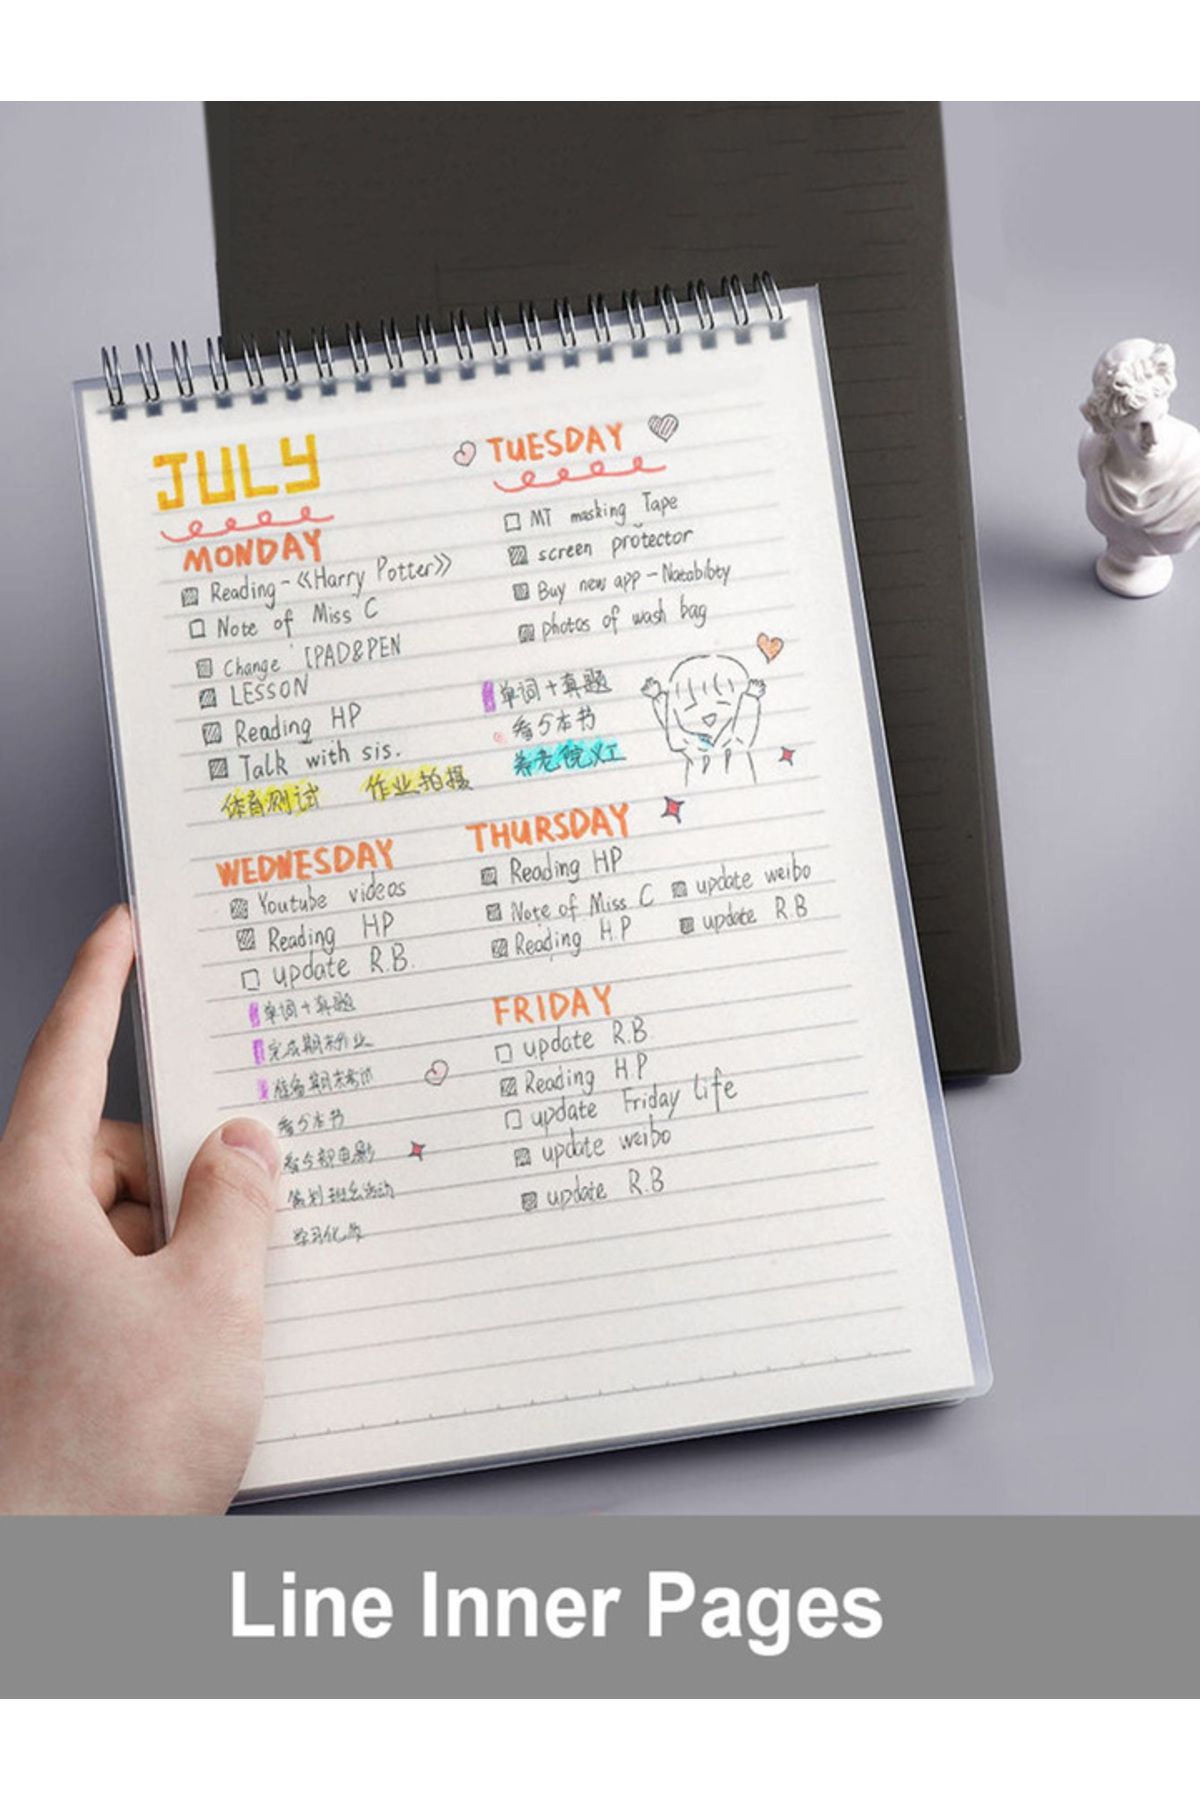 JULY
MONDAY
Reading-《Harry Potter》
Note of Miss C
Change IPAD&PEN
LESSON
Reading HP
Talk with sis.
体育测试 作业拍摄
TUESDAY
MT masking Tape
screen protector
Buy new app-Notability
photos of wash bag
单词+真题
看5本书
养老院义工
WEDNESDAY
Youtube videos
Reading HP
update R.B.
单词+真题
完成期末作业
准备期末考试
看5本书
看5部电影
策划班会活动
学习化妆
THURSDAY
Reading HP
Note of Miss C update weibo
Reading H.P update R.B
FRIDAY
update R.B
Reading H.P
update Friday life
update weibo
update R.B
Line Inner Pages